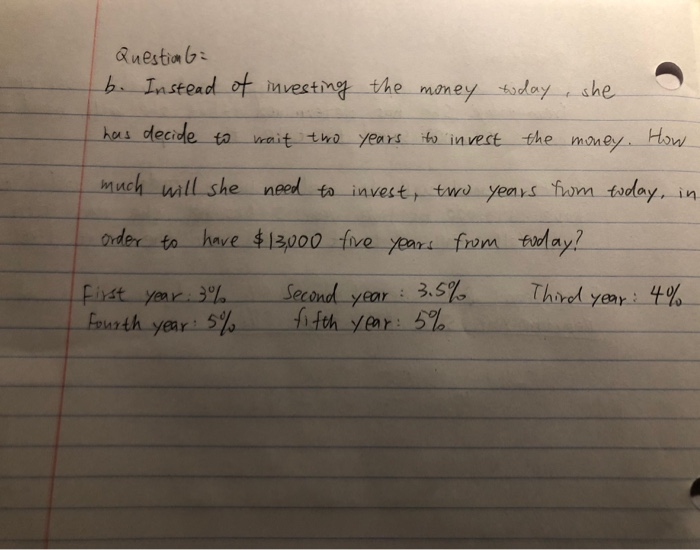 Question 6:
b. Instead of investing the money today, she
has decide to wait two years to invest the money. How
much will she need to invest, two years from today, in
order to have $13,000 five years from today?
First year: 3% Second year: 3.5% Third year: 4%
Fourth year: 5% fifth year: 5%